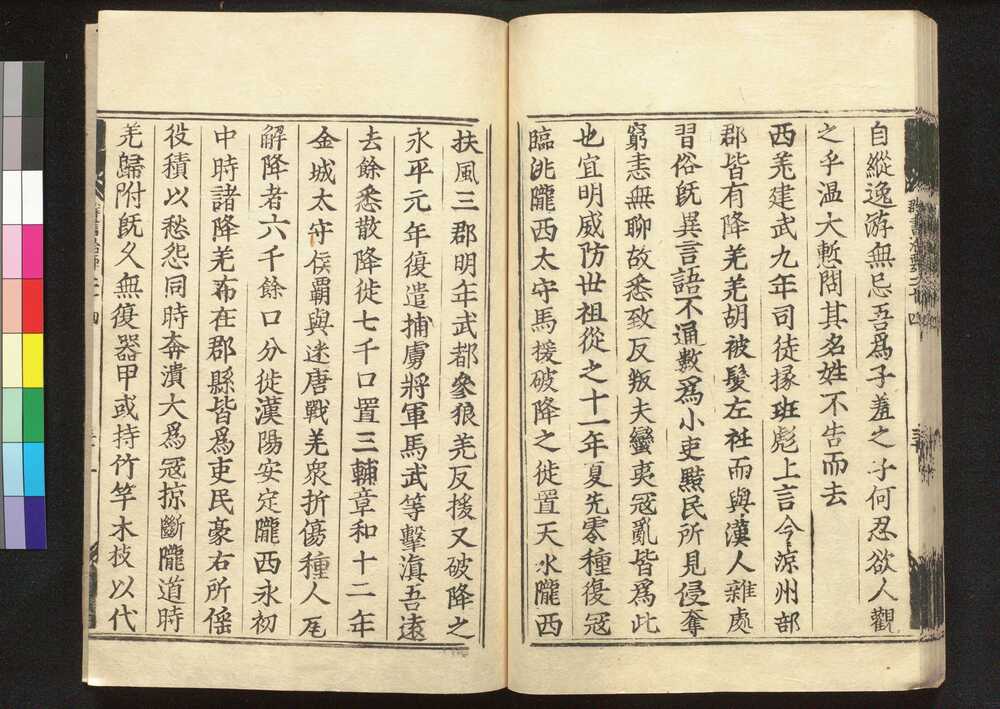 自縱逸游無忌吾爲子羞之子何忍欲人觀
之乎温大慙問其名姓不告而去
西羌建武九年司徒掾班彪上言今涼州部
郡皆有降羌羌胡被髮左衽而與漢人雜處
習俗旣異言語不通數爲小吏黠民所見侵奪
窮恚無聊故悉致反叛夫蠻夷寇亂皆爲此
也宜明威防世祖從之十一年夏先零種復寇
臨洮隴西太守馬援破降之徙置天水隴西
扶風三郡明年武都參狼羌反援又破降之
永平元年復遣捕虜將軍馬武等擊滇吾遠
去餘悉散降徙七千口置三輔章和十二年
金城太守侯霸與迷唐戰羌衆折傷種人瓦
解降者六千餘口分徙漢陽安定隴西永初
中時諸降羌布在郡縣皆爲吏民豪右所傜
役積以愁怨同時奔潰大爲寇掠斷隴道時
羌歸附旣久無復器甲或持竹竿木枝以代
群書治要